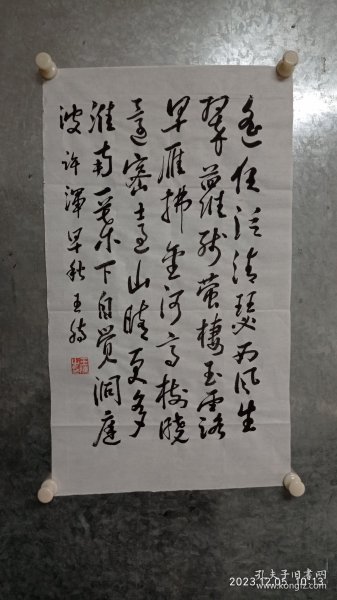 遥夜泛清瑟西风生
翠蘿残萤栖玉露
早雁拂金河高树晓
還密遠山晴更多
淮南一葉下自觉洞庭
波 许渾早秋 王
2023.12.05 10:13
孔夫子旧书网
www.kongfz.com